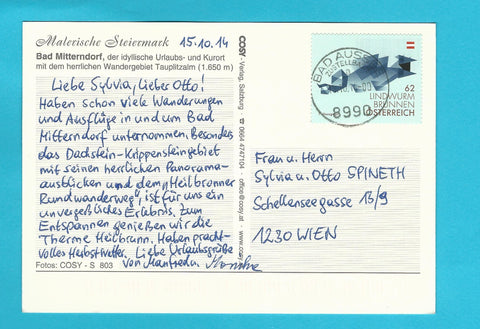 Malerische Steiermark 15.10.14
Bad Mitterndorf, der idyllische Urlaubs- und Kurort
mit dem herrlichen Wandergebiet Tauplitzalm (1.650 m)
Liebe Sylvia, lieber Otto!
Haben schon viele Wanderungen
und Ausflüge in und um Bad
Mitterndorf unternommen. Besonders
das Dachstein-Krippensteingebiet
mit seinen herrlichen Panorama-
ausblicken und dem „Heilbronner
Rundwanderweg", ist für uns ein
unvergeßliches Erlebnis. Zum
Entspannen genießen wir die
Therme Heilbrunn. Haben pracht-
volles Herbstwetter. Liebe Urlaubsgrüße
von Manfred u.
Fotos: COSY - S 803
COSY - Verlag, Salzburg ☎ 0664 4747104 - office@cosy.at - www.cosy.at
BAD AUSSEE
8990
62
LINDWURM
BRUNNEN
ÖSTERREICH
Frau u. Herrn
Sylvia u. Otto SPINETH
Schellenseegasse 13/9
1230 WIEN